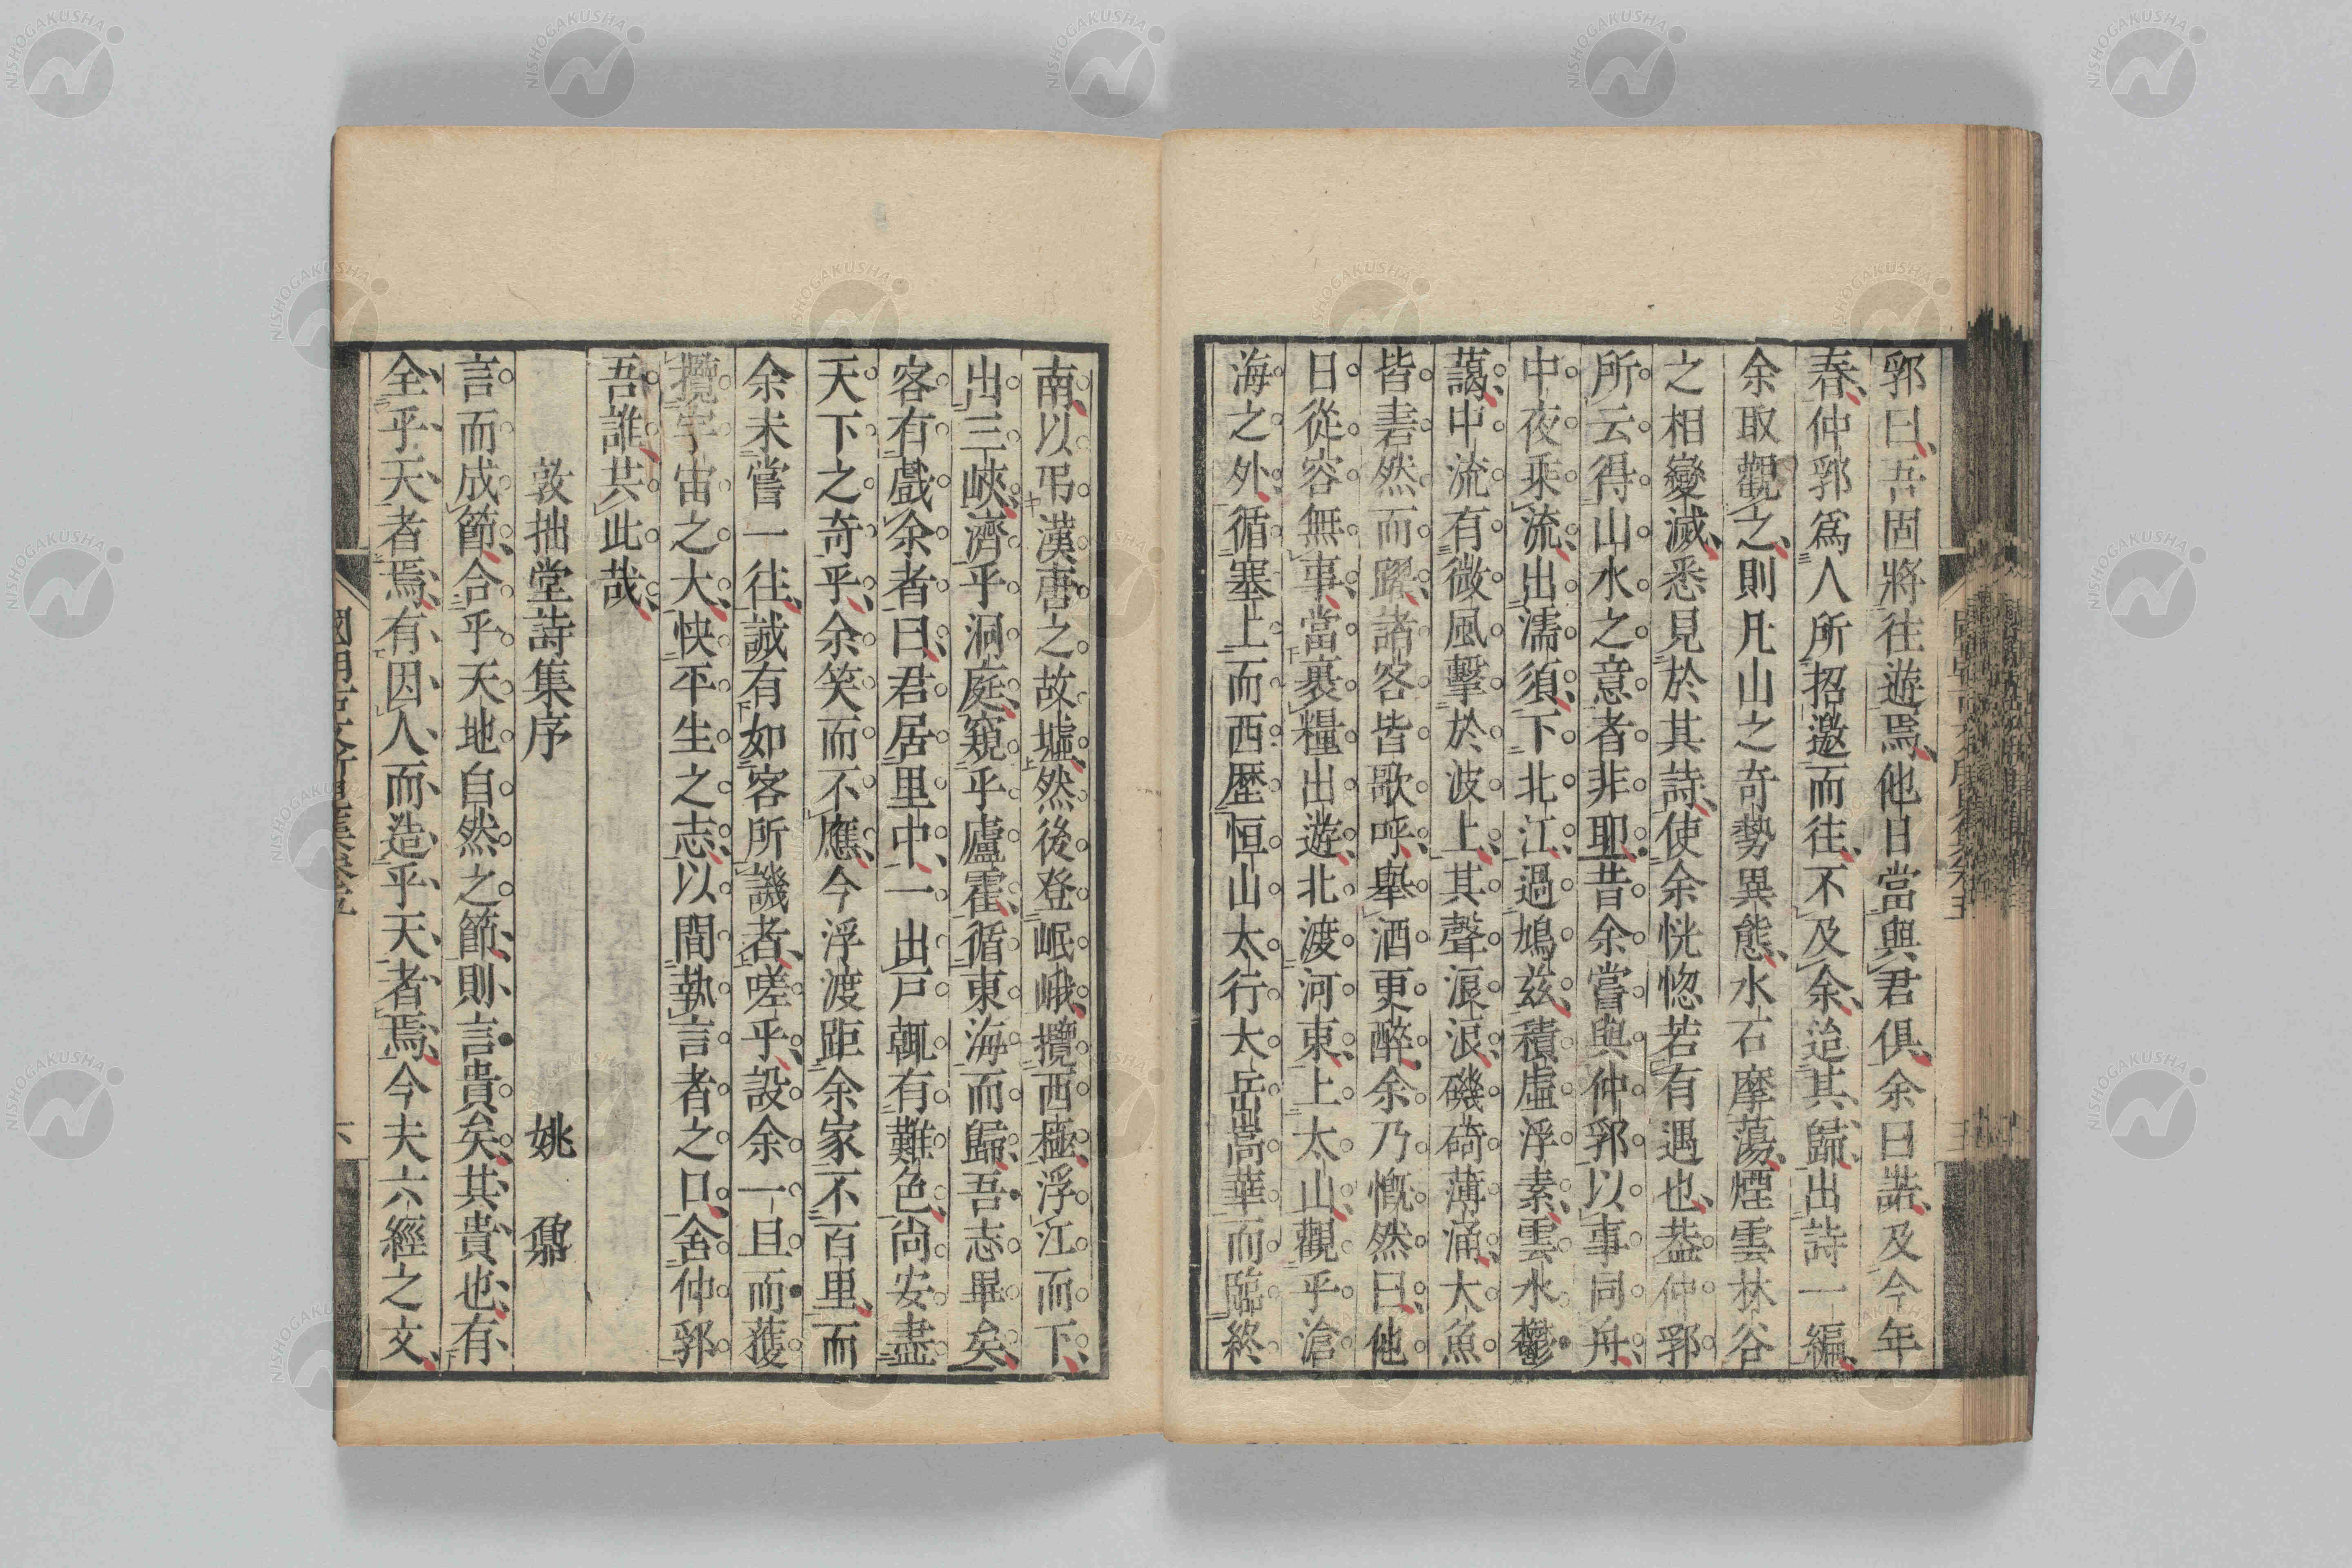 郭曰吾固將往遊焉他日當與君俱余曰諾及今年
春仲郭爲人所招邀而往不及余迨其歸出詩一編
余取觀之則凡山之奇勢異態水石摩蕩煙雲林谷
之相變滅悉見於其詩使余恍惚若有遇也葢仲郭
所云得山水之意者非耶昔余嘗與仲郭以事同舟
中夜乘流出濡須下北江過鳩兹積虛浮素雲水鬱
藹中流有微風擊於波上其聲浪浪磯碕薄涌大魚
皆砉然而躍諸客皆歌呼舉酒更醉余乃慨然曰他
日從容無事當裹糧出遊北渡河東上太山觀乎滄
海之外循塞上而西歷恒山太行大岳嵩華而臨終
南以弔漢唐之故墟然後登岷峨攬西極浮江而下
出三峽濟乎洞庭窺乎廬霍循東海而歸吾志畢矣
客有戲余者曰君居里中一出戸輒有難色尚安盡
天下之奇乎余笑而不應今浮渡距余家不百里而
余未嘗一往誠有如客所譏者嗟乎設余一旦而獲
攬宇宙之大快平生之志以間執言者之口舍仲郭
吾誰共此哉
敦拙堂詩集序 姚鼐
言而成節合乎天地自然之節則言貴矣其貴也有
全乎天者焉有因人而造乎天者焉今夫六經之文
NISHOGAKUSHA